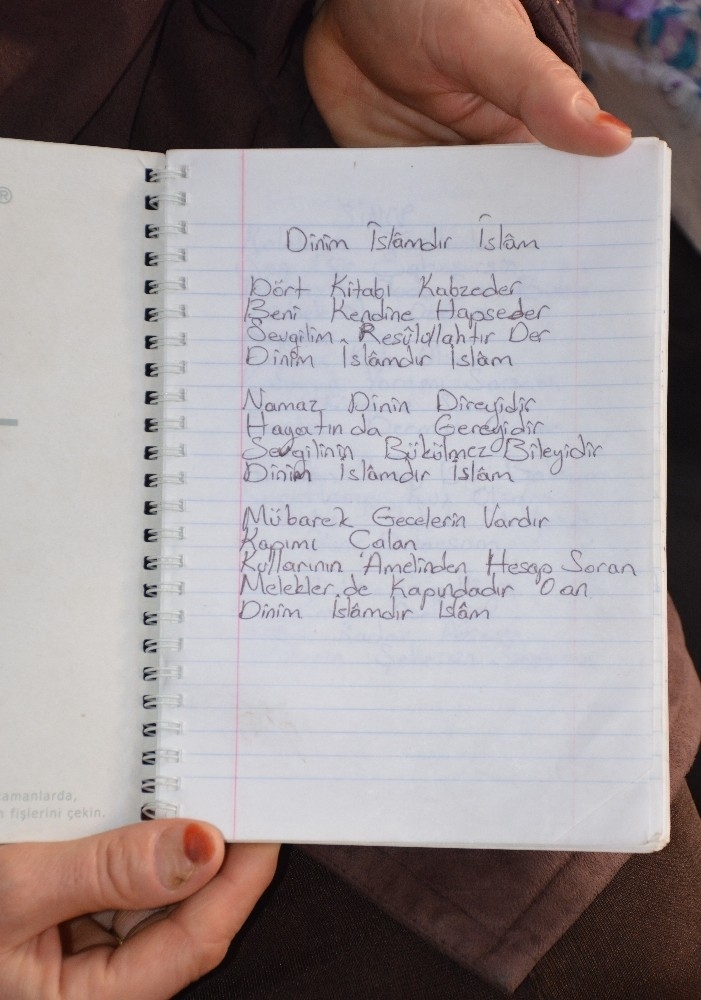 Dinim İslâmdır İslâm
Dört Kitabı Kabzeder
Beni Kendine Hapseder
Sevgilim Resûlullahtır Der
Dinim İslâmdır İslâm
Namaz Dinin Direyidir
Hayatında Gereyidir
Sevgilinin Bükülmez Bileyidir
Dinim İslâmdır İslâm
Mübarek Gecelerin Vardır
Kapımı Çalan
Kullarının Amelinden Hesap Soran
Melekler de Kapındadır O an
Dinim İslâmdır İslâm
®
zamanlarda,
n fişlerini çekin.